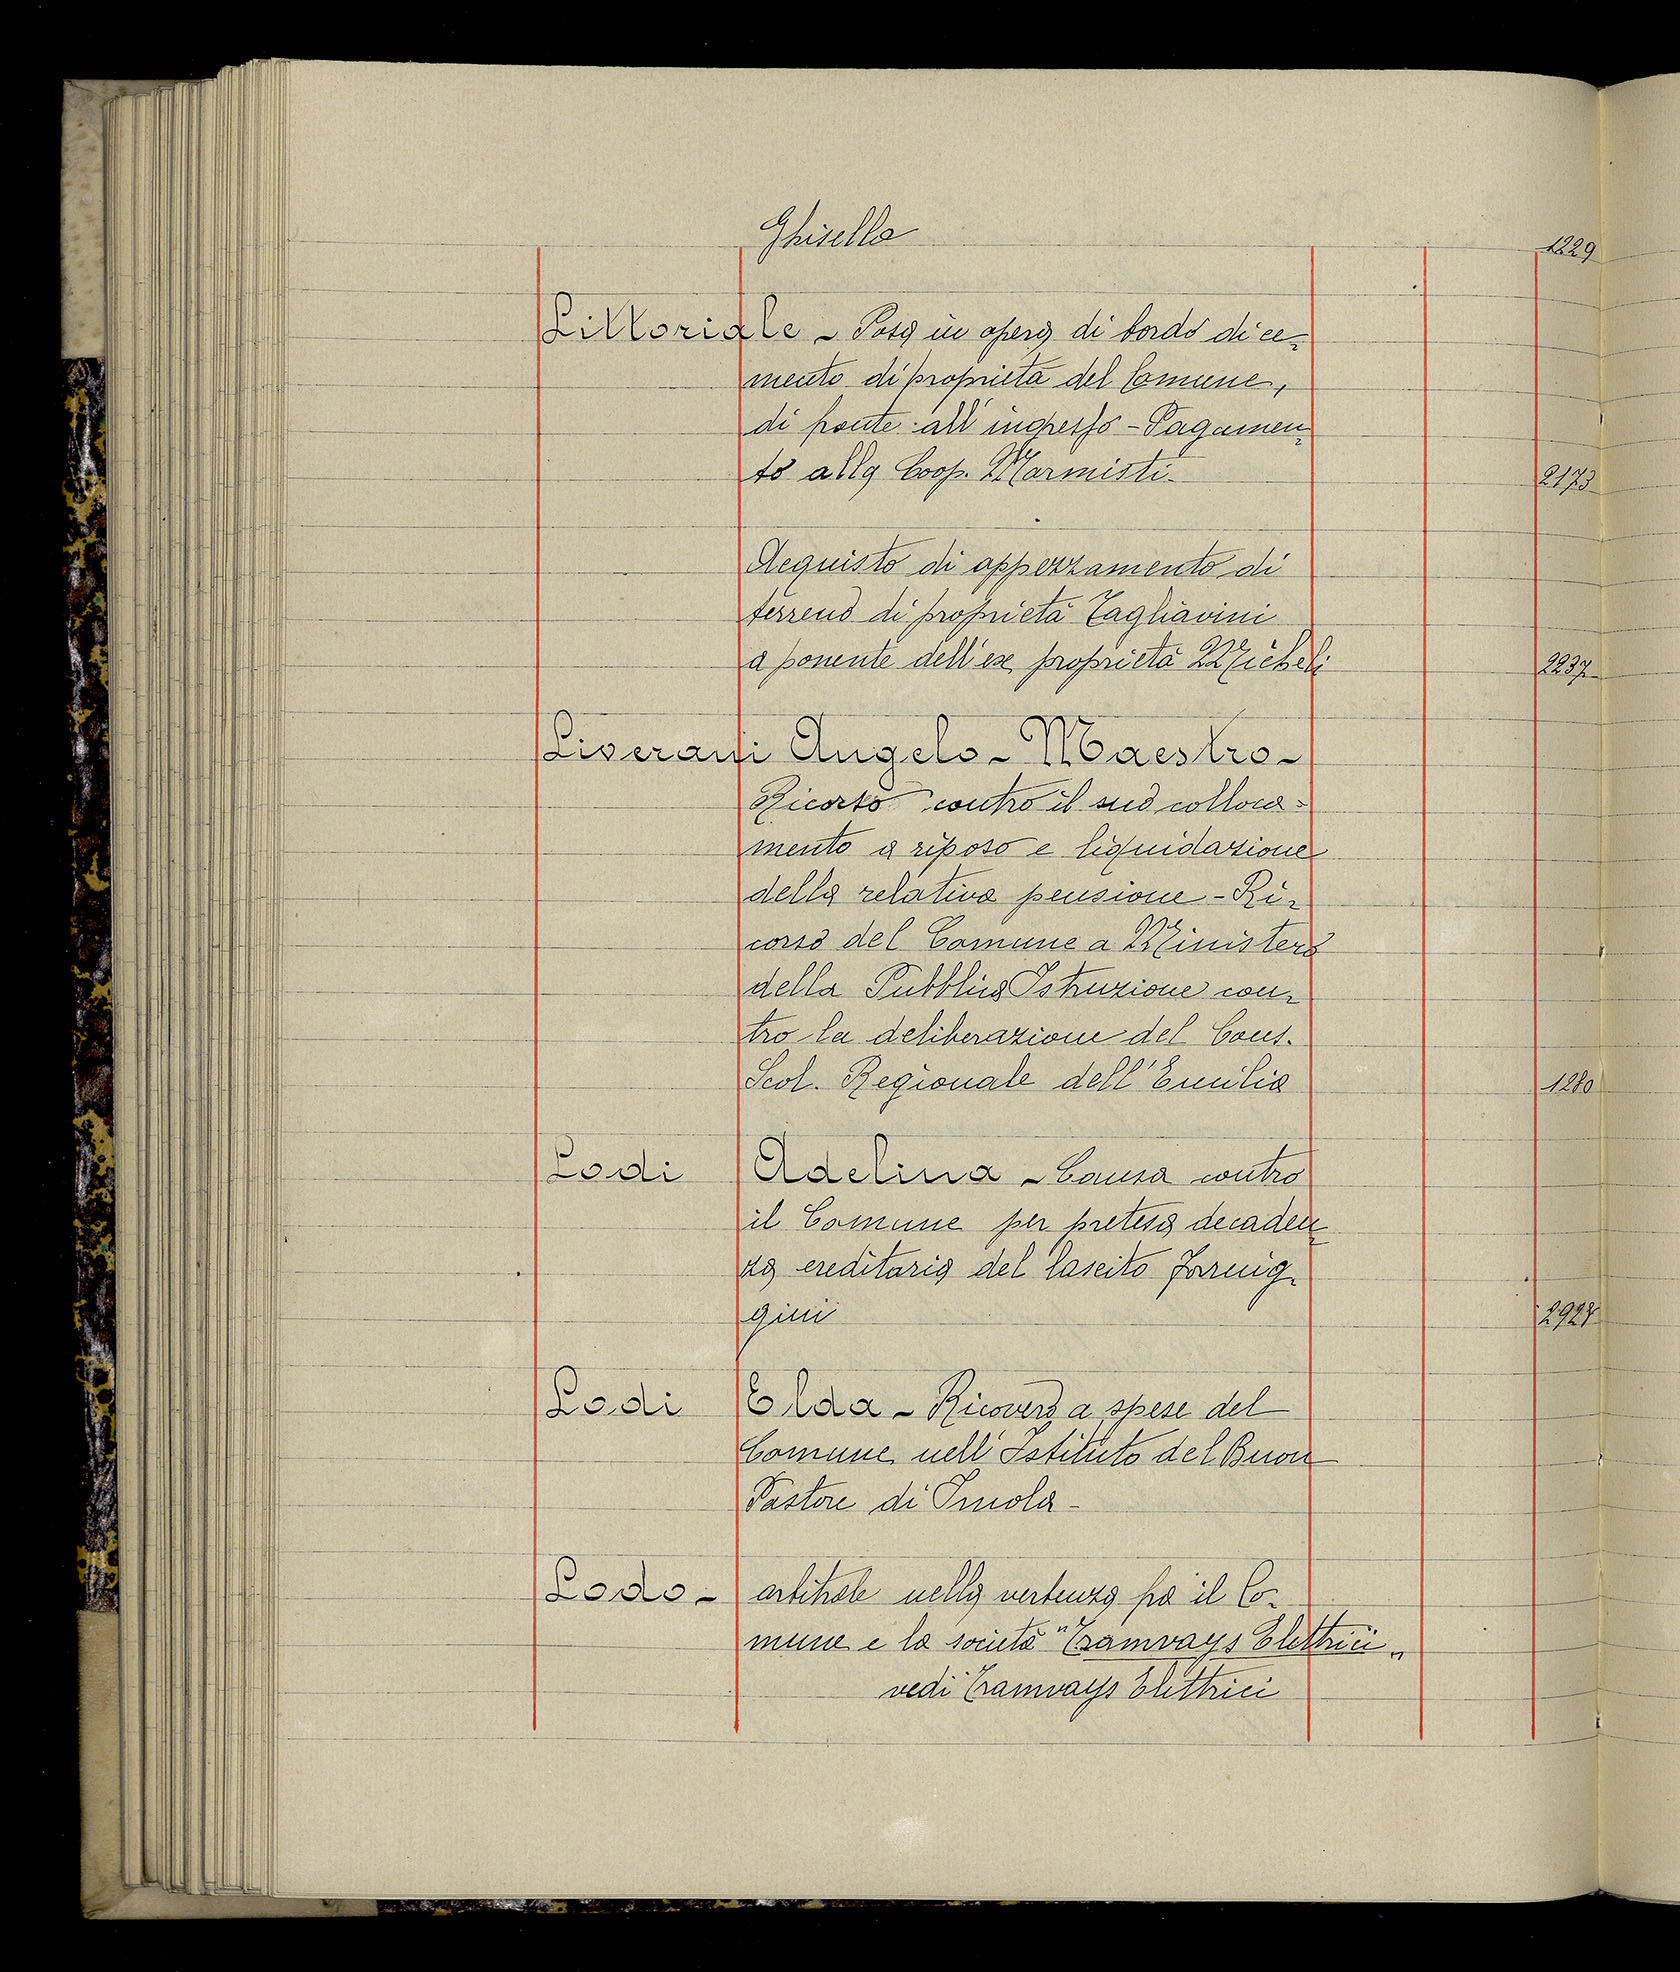 Ghisella 1229
Littoriale - Posa in opera di bordo di ce=
mento di proprietà del Comune,
di fronte all'ingresso - Pagamen=
to alla Coop. Marmisti - 2173
Acquisto di appezzamento di
terreno di proprietà Tagliavini
a ponente dell'ex proprietà Micheli 2237
Liverani Angelo - Maestro -
Ricorso contro il suo colloca=
mento a riposo e liquidazione
della relativa pensione - Ri=
corso del Comune a Ministero
della Pubblica Istruzione con=
tro la deliberazione del Cons.
Scol. Regionale dell'Emilia 1280
Lodi Adelina - Causa contro
il Comune per pretesa decaden=
za ereditaria del lascito
gini
Lodi Elda - Ricovero a spese del
Comune nell'Istituto del Buon
Pastore di Imola -
Lodo - arbitrale nella vertenza fra il Co=
mune e la società "Tramways Elettrici"
vedi Tramways Elettrici